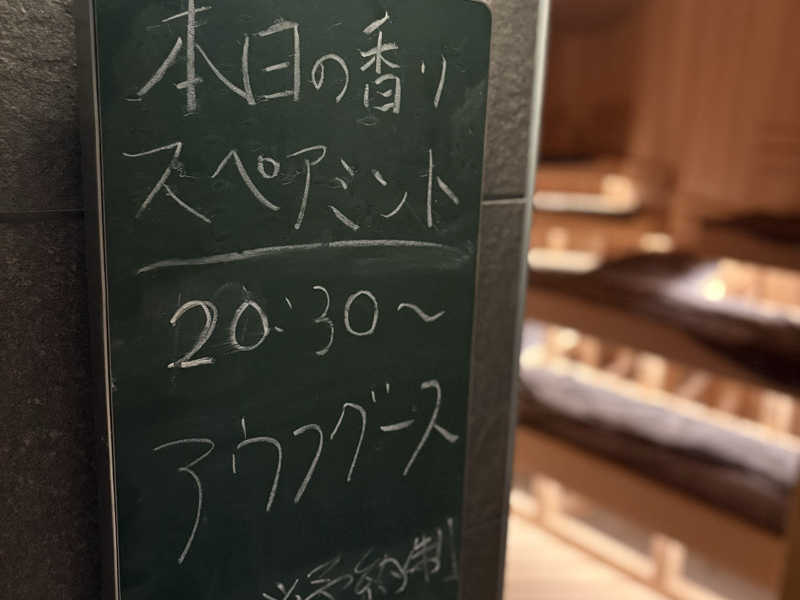 本日の香り
スペアミント
20:30〜
アウフグース
※予約制